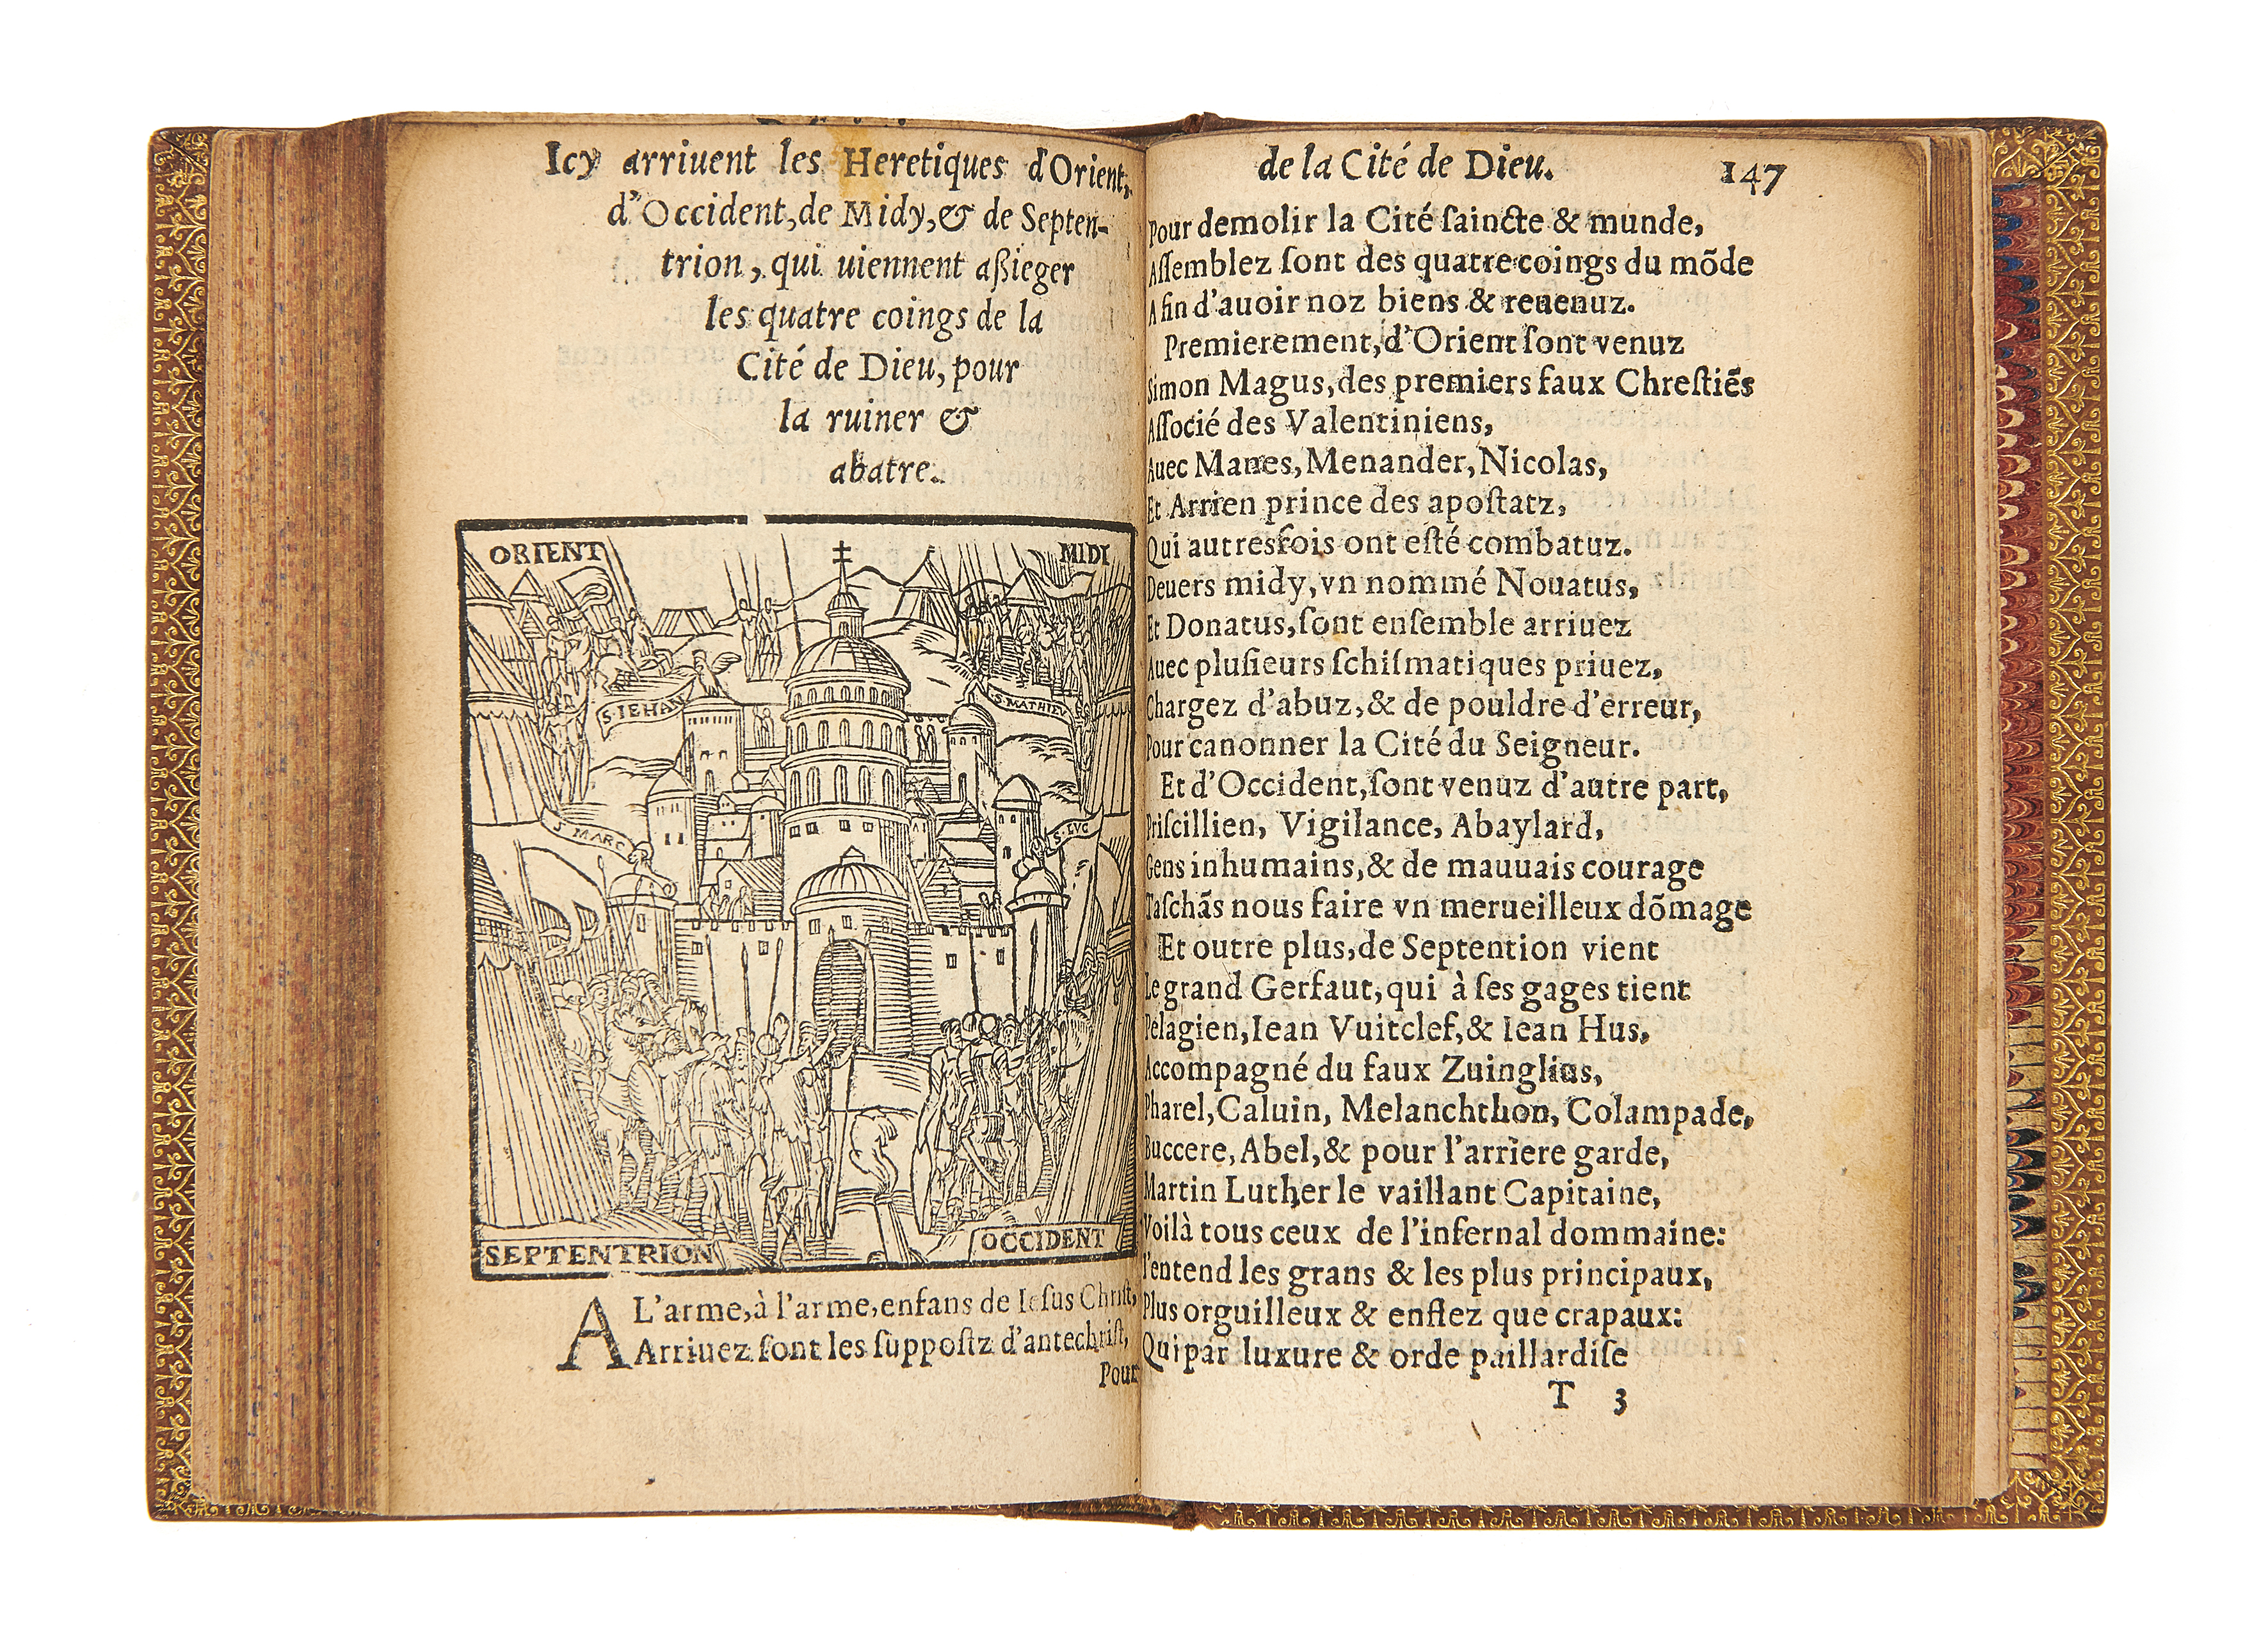 Icy arriuent les Heretiques d'Orient,
d'Occident, de Midy, & de Septen-
trion, qui uiennent aßieger
les quatre coings de la
Cité de Dieu, pour
la ruiner &
abatre.
ORIENT
MIDI
S. IEHAN
S. MATHIEV
S. MARC
S. LVC
SEPTENTRION
OCCIDENT
AL'arme, à l'arme, enfans de Iesus Christ,
Arriuez sont les suppostz d'antechrist,
Pour
de la Cité de Dieu. 147
Pour demolir la Cité saincte & munde,
Assemblez sont des quatre coings du mõde
Afin d'auoir noz biens & reuenuz.
Premierement, d'Orient sont venuz
Simon Magus, des premiers faux Chrestiẽs
Associé des Valentiniens,
Auec Manes, Menander, Nicolas,
Et Arrien prince des apostatz,
Qui autresfois ont esté combatuz.
Deuers midy, vn nommé Nouatus,
Et Donatus, sont ensemble arriuez
Auec plusieurs schismatiques priuez,
Chargez d'abuz, & de pouldre d'erreur,
Pour canonner la Cité du Seigneur.
Et d'Occident, sont venuz d'autre part,
Priscillien, Vigilance, Abaylard,
Gens inhumains, & de mauuais courage
Taschãs nous faire vn merueilleux dõmage
Et outre plus, de Septention vient
Le grand Gerfaut, qui à ses gages tient
Pelagien, Iean Vuitclef, & Iean Hus,
Accompagné du faux Zuinglius,
Pharel, Caluin, Melanchthon, Colampade,
Buccere, Abel, & pour l'arriere garde,
Martin Luther le vaillant Capitaine,
Voilà tous ceux de l'infernal dommaine:
I'entend les grans & les plus principaux,
Plus orguilleux & enflez que crapaux:
Qui par luxure & orde paillardise
T 3